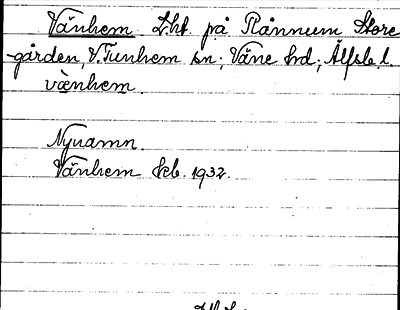 Vänhem Lht. på Rånnum Store
gården, V. Tunhem sn; Väne hd; Älfsb. l.
vænhem.
Nynamn.
Vänhem kb. 1932.